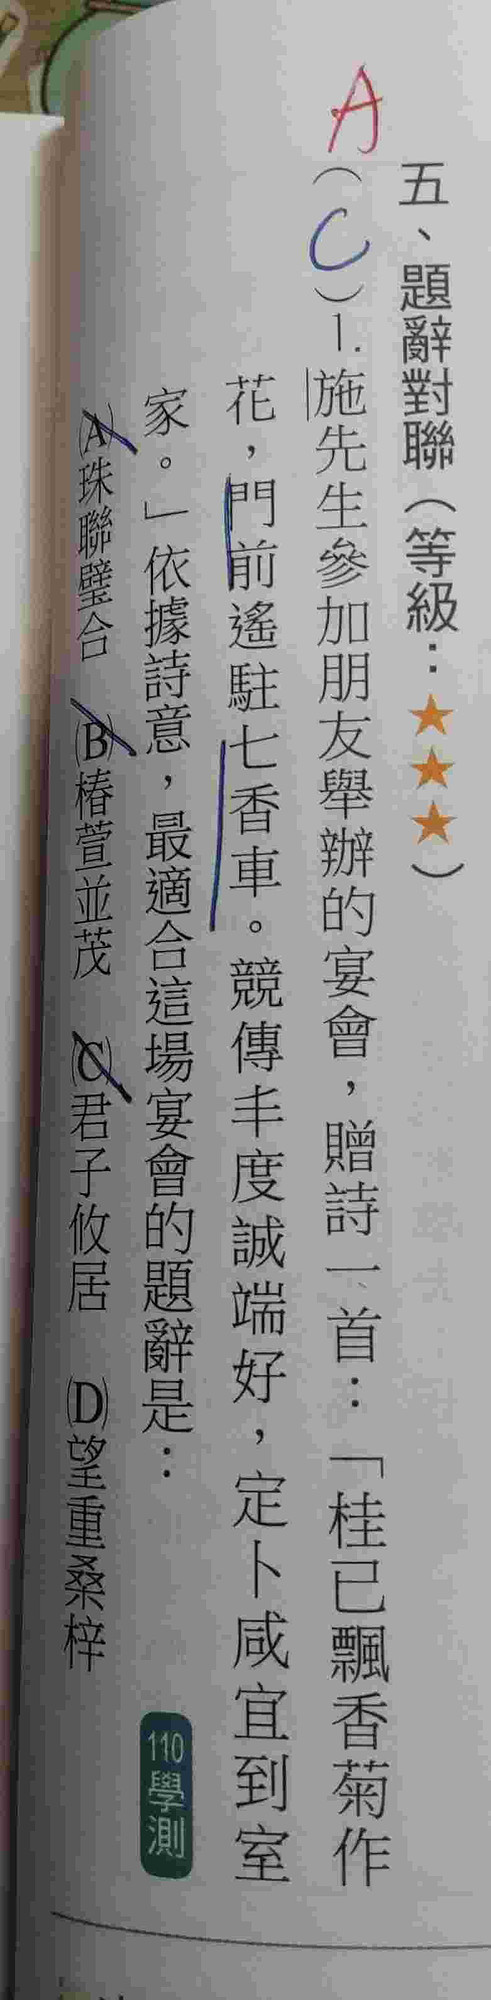 五、題辭對聯（等級：★★★）
A
（C）1.施先生參加朋友舉辦的宴會，贈詩一首：「桂已飄香菊作
花，門前遙駐七香車。競傳丰度誠端好，定卜咸宜到室
家。」依據詩意，最適合這場宴會的題辭是：
110學測
(A)珠聯璧合 (B)椿萱並茂 (C)君子攸居 (D)望重桑梓